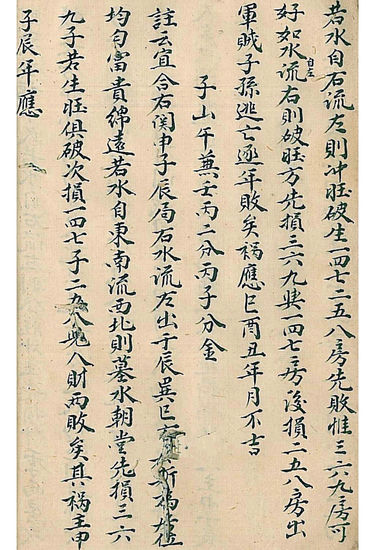 若水自右流左則冲旺破生一四七二五八房先敗惟三六九房可
好如水自左流右則破旺方先損三六九與一四七房後損二五八房出
軍賊子孫逃亡逐年敗矣禍應巳酉丑年月不吉
子山午兼壬丙二分丙子分金
註云宜合右関申子辰局右水流左出于辰巽巳
均匀富貴綿遠若水自東南流西北則墓水朝堂先損三六
九子若生旺俱破次損一四七子二五八 人財兩敗矣其禍主申
子辰年應